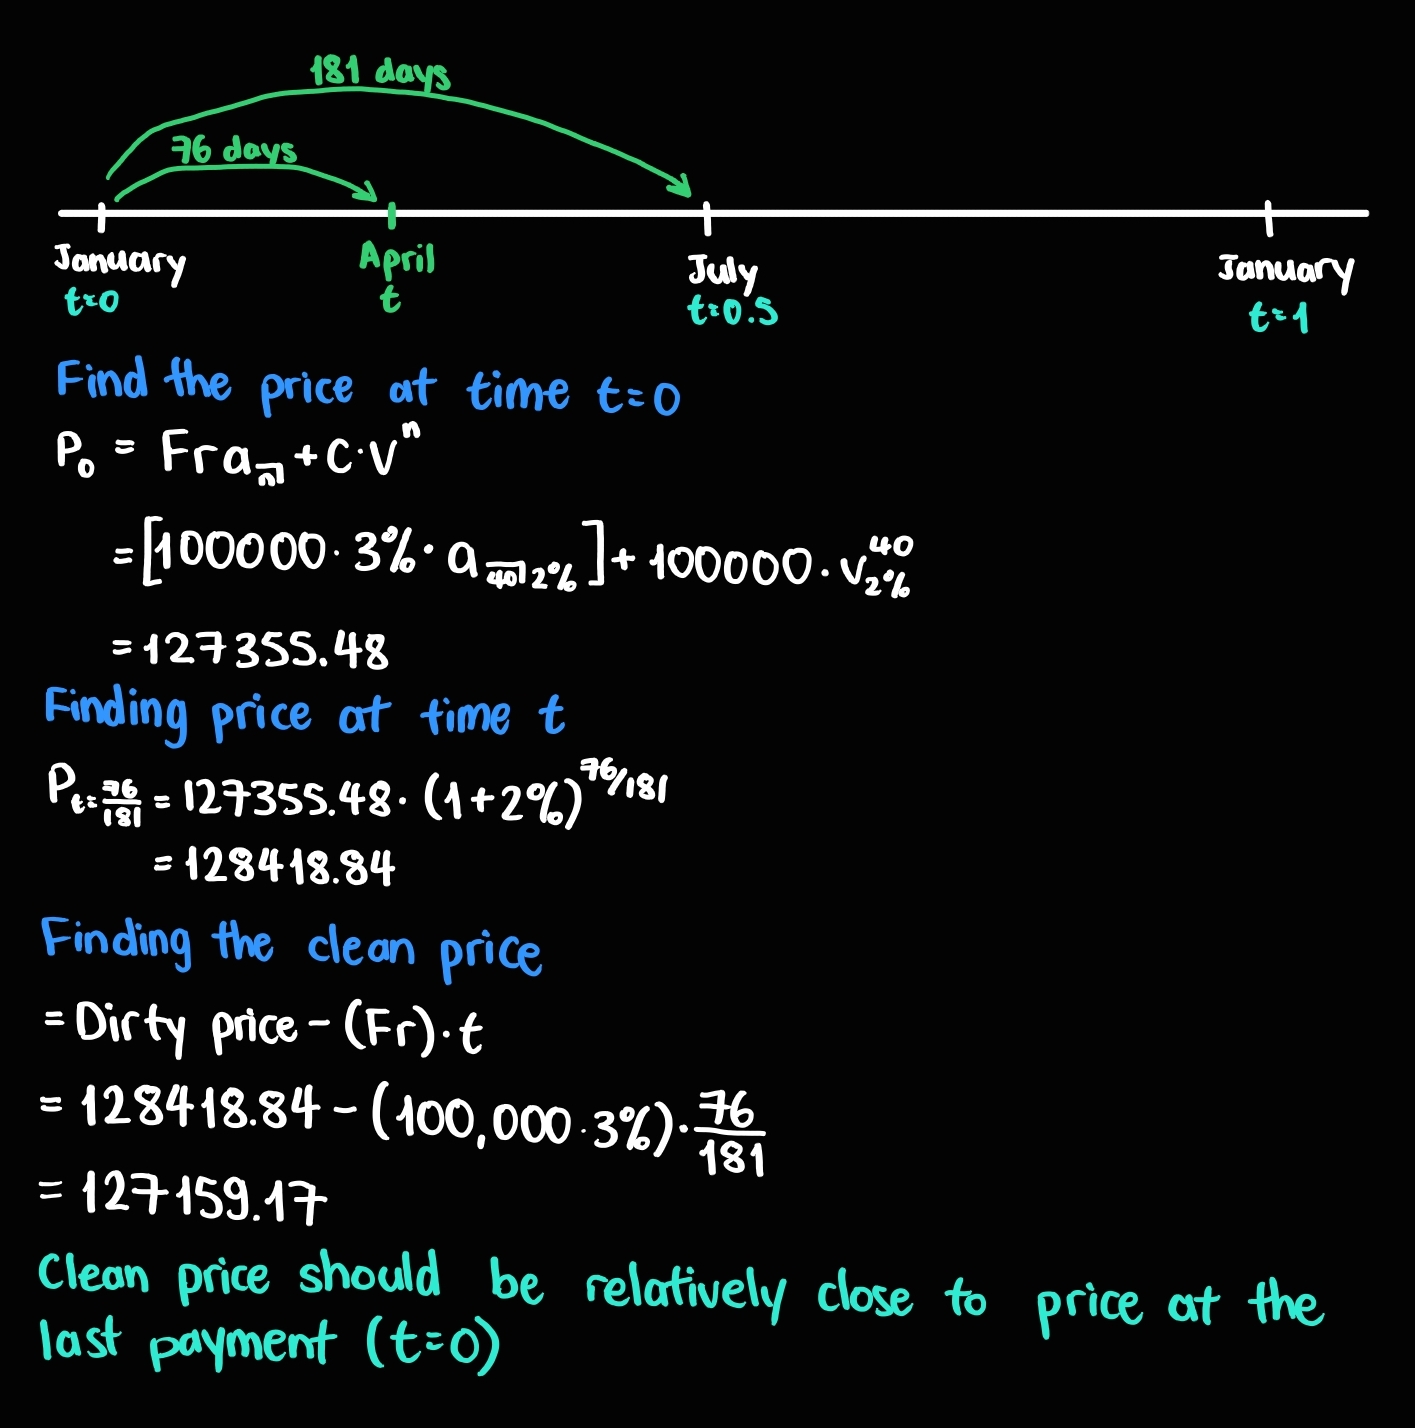 181 days
76 days
January April July January
t=0 t t=0.5 t=1
Find the price at time t=0
P₀ = Fra_n̅| + C·Vⁿ
= [100000·3%·a_4̅0̅|2%] + 100000·V⁴⁰_2%
= 127355.48
Finding price at time t
P_t=76/181 = 127355.48·(1+2%)^76/181
= 128418.84
Finding the clean price
= Dirty price - (Fr)·t
= 128418.84 - (100,000·3%)·76/181
= 127159.17
Clean price should be relatively close to price at the
last payment (t=0)